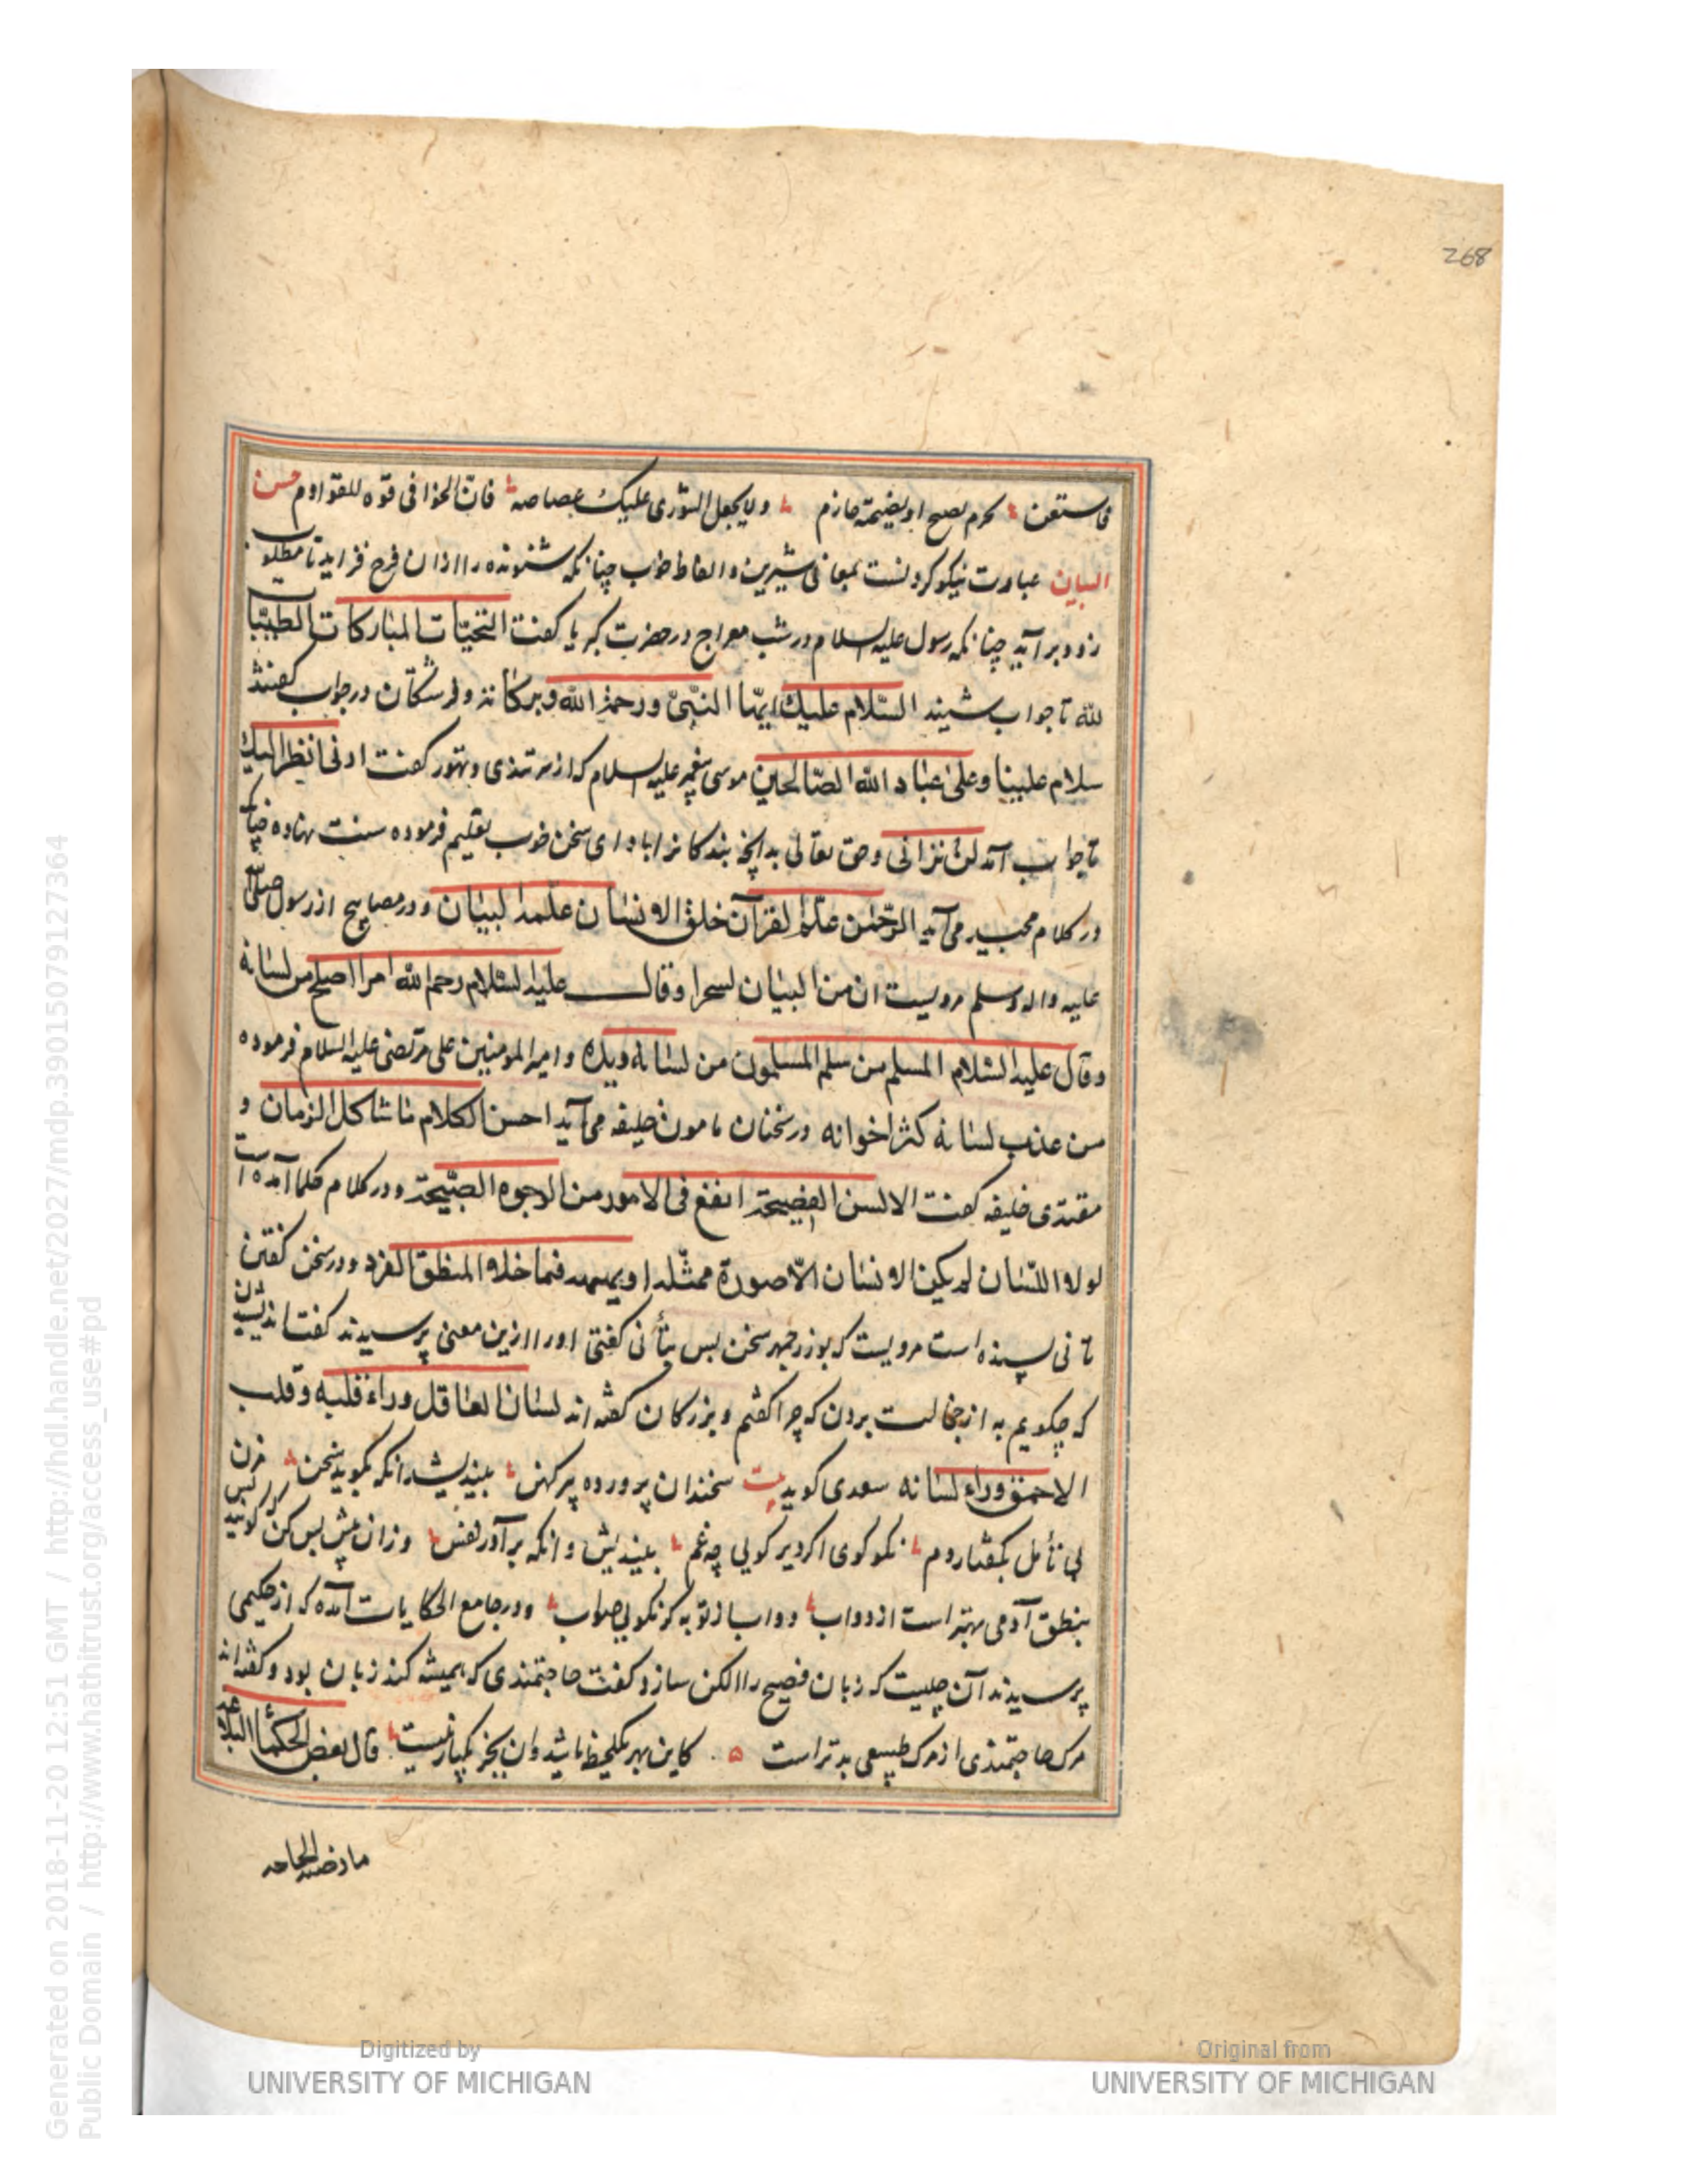 268
فاستعن بحزم نصیح او نصیحة حازم ولا یجعل الشوری علیک غضاضه فانّ الخوافی قوه للقوادم حسن
البیان عبارت نیکو کردنست بمعانی شیرین و الفاظ خوب چنانکه شنونده را از آن فرح فزاید تا مطلوب
زود برآید چنانکه رسول علیه السلام در شب معراج در حضرت کبریا گفت التحیّات المبارکات الطیّبات
لله تا جواب شنید السّلام علیک ایّها النّبیّ ورحمة الله وبرکاته و فرشتگان در جواب گفتند
سلام علینا وعلی عباد الله الصّالحین موسی پیغمبر علیه السلام که از سر تندی و تهور گفت ارنی انظر الیک
تا جواب آمد لن ترانی وحق تعالی بدانچه بندکانرا بادای سخن خوب تعلیم فرموده سنت نهاده چنانکه
در کلام مجید می آید الرّحمن علّم القرآن خلق الانسان علّمه البیان و در مصابیح از رسول صلّی الله
علیه واله وسلم مرویست ان من البیان لسحرا وقال علیه السّلام رحم الله امرا اصلح من لسانه
وقال علیه السّلام المسلم من سلم المسلمون من لسانه ویده و امیر المومنین علی مرتضی علیه السلام فرموده
من عذب لسانه کثر اخوانه در سخنان مامون خلیفه می آید احسن الکلام ما شاکل الزمان و
مقتدی خلیفه گفت الالسن الفصیحة انفع فی الامور من الوجوه الصّبیحة و در کلام حکما آمده است
لولا اللّسان لم یکن الانسان الّا صورة ممثّلة او بهیمة و در سخن گفتن
تانی پسندیده است مرویست که بوزرجمهر سخن بس بتأنی گفتی او را ازین معنی پرسیدند گفت اندیشیدن
که چگویم به از خجالت بردن که چرا گفتم و بزرکان گفته اند لسان العاقل وراء قلبه وقلب
الاحمق وراء لسانه سعدی کوید بیت سخندان پرورده پیر کهن بیندیشد انکه بکوید سخن مزن
بی تأمل بکفتار دم نکو کوی اکر دیر کویی چه غم بیندیش و انکه برآور نفس وزان پیش بس کن که کویند بس
بنطق آدمی بهتر است از دواب دواب از تو به کر نکویی صواب و در جامع الحکایات آمده که از حکیمی
پرسیدند آن چیست که زبان فصیح را الکن سازد کفت حاجتمندی که همیشه کند زبان بود و کفته اند
مرک حاجتمندی از مرک طبیعی بدتر است کاین بهر یکلحظه باشد وان بجز یکبار نیست قال بعض الحکماء البلاغة
Generated on 2018-11-20 12:51 GMT / http://hdl.handle.net/2027/mdp.39015079127364
Public Domain / http://www.hathitrust.org/access_use#pd
Digitized by
UNIVERSITY OF MICHIGAN
Original from
UNIVERSITY OF MICHIGAN